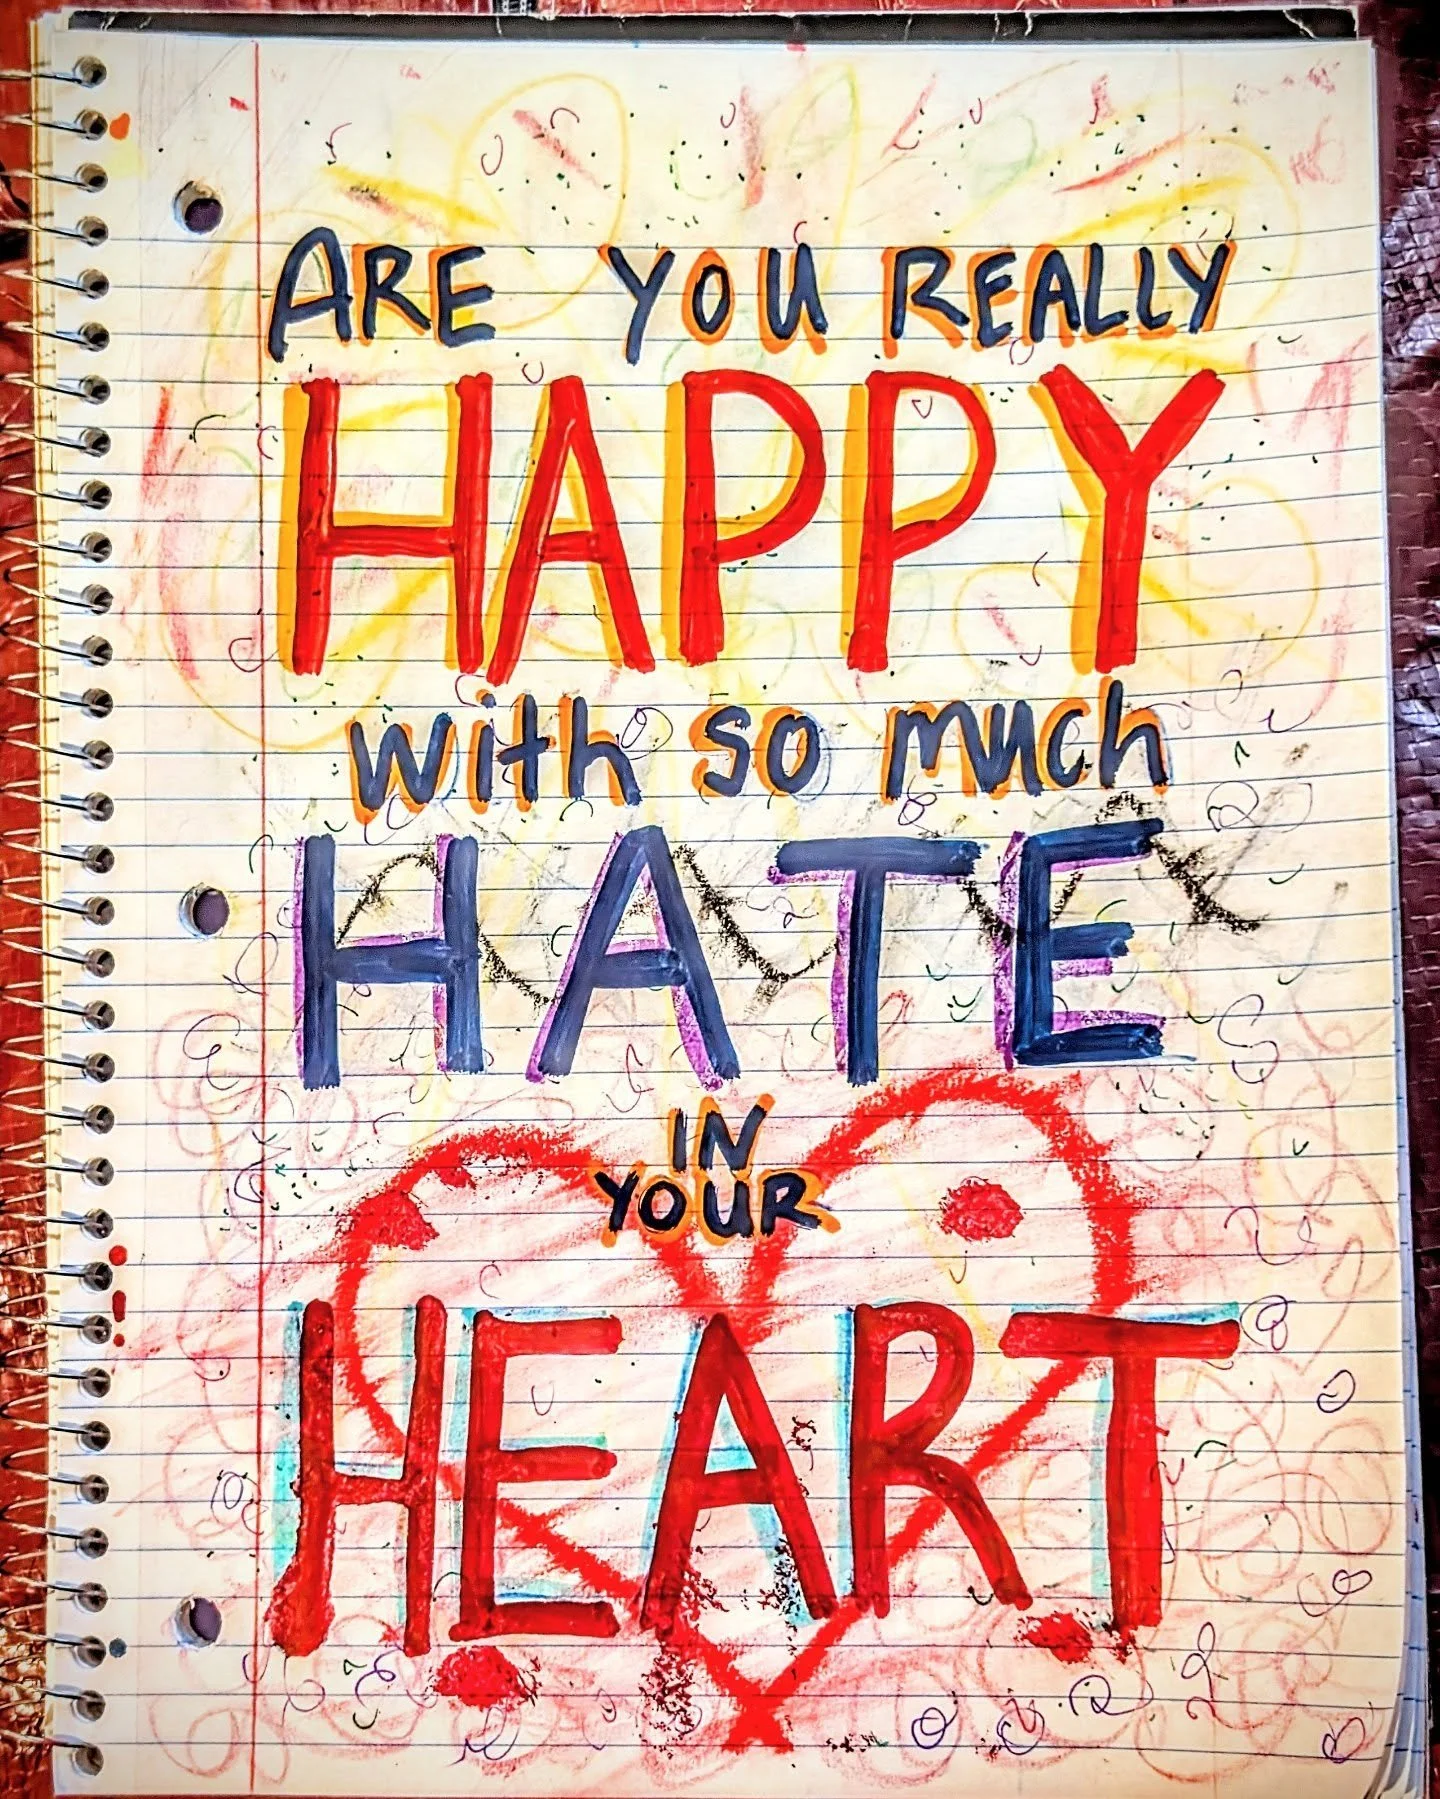 ARE YOU REALLY
HAPPY
with so much
HATE
IN
YOUR
HEART